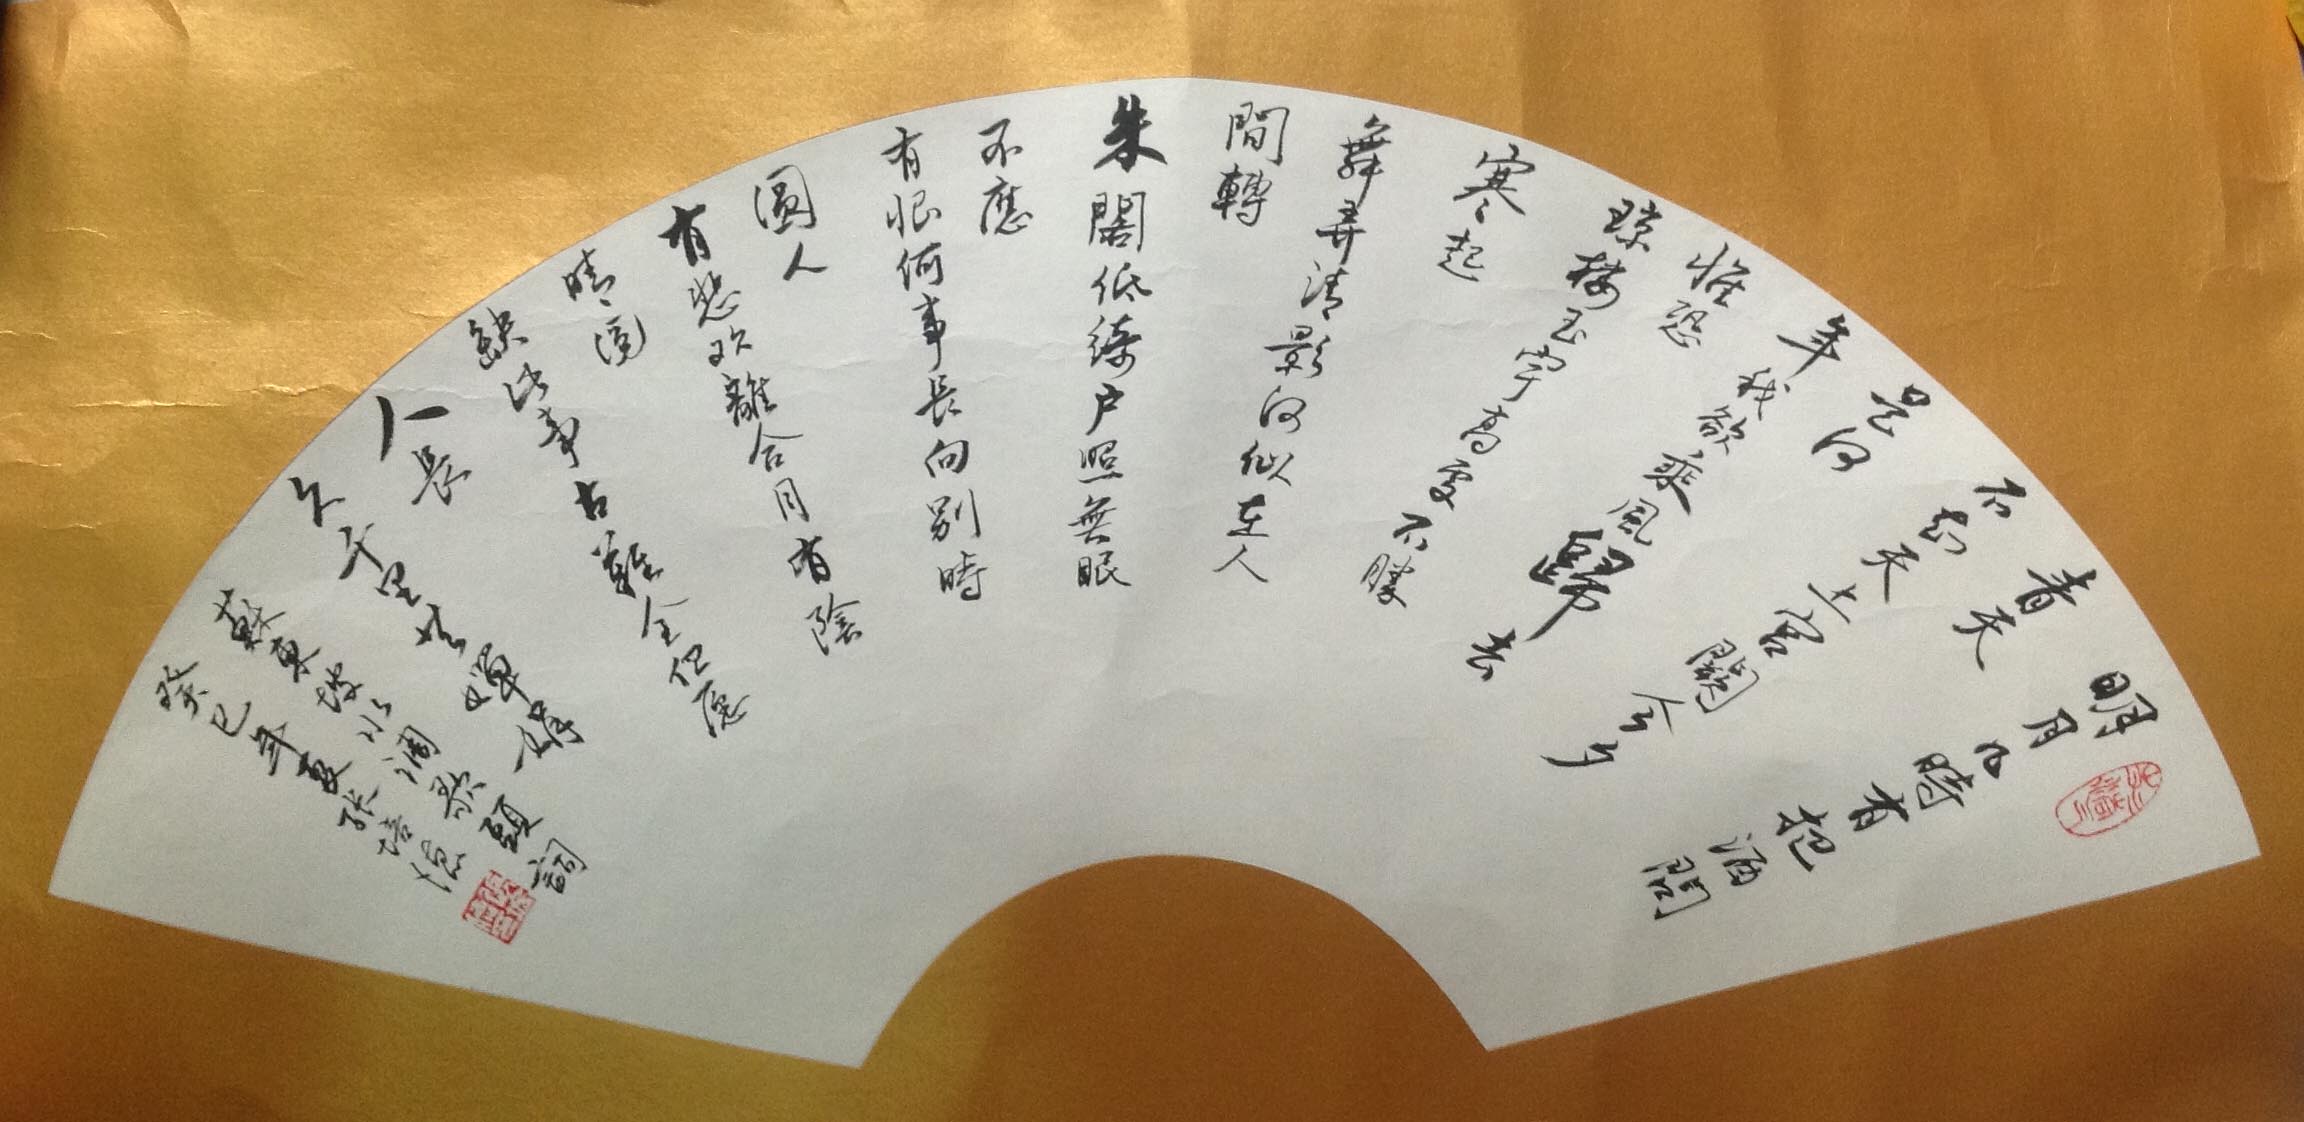 明月几時有把酒問
青天
不知天上宮闕今夕
是何
年我欲乘風歸去
惟恐
瓊樓玉宇高處不勝
寒起
舞弄清影何似在人
間轉
朱閣低綺户照無眠
不應
有恨何事長向别時
圓人
有悲欢離合月有陰
晴圓
缺此事古難全但愿
人長
久千里共嬋娟
蘇東坡水调歌頭詞
癸巳年夏张培